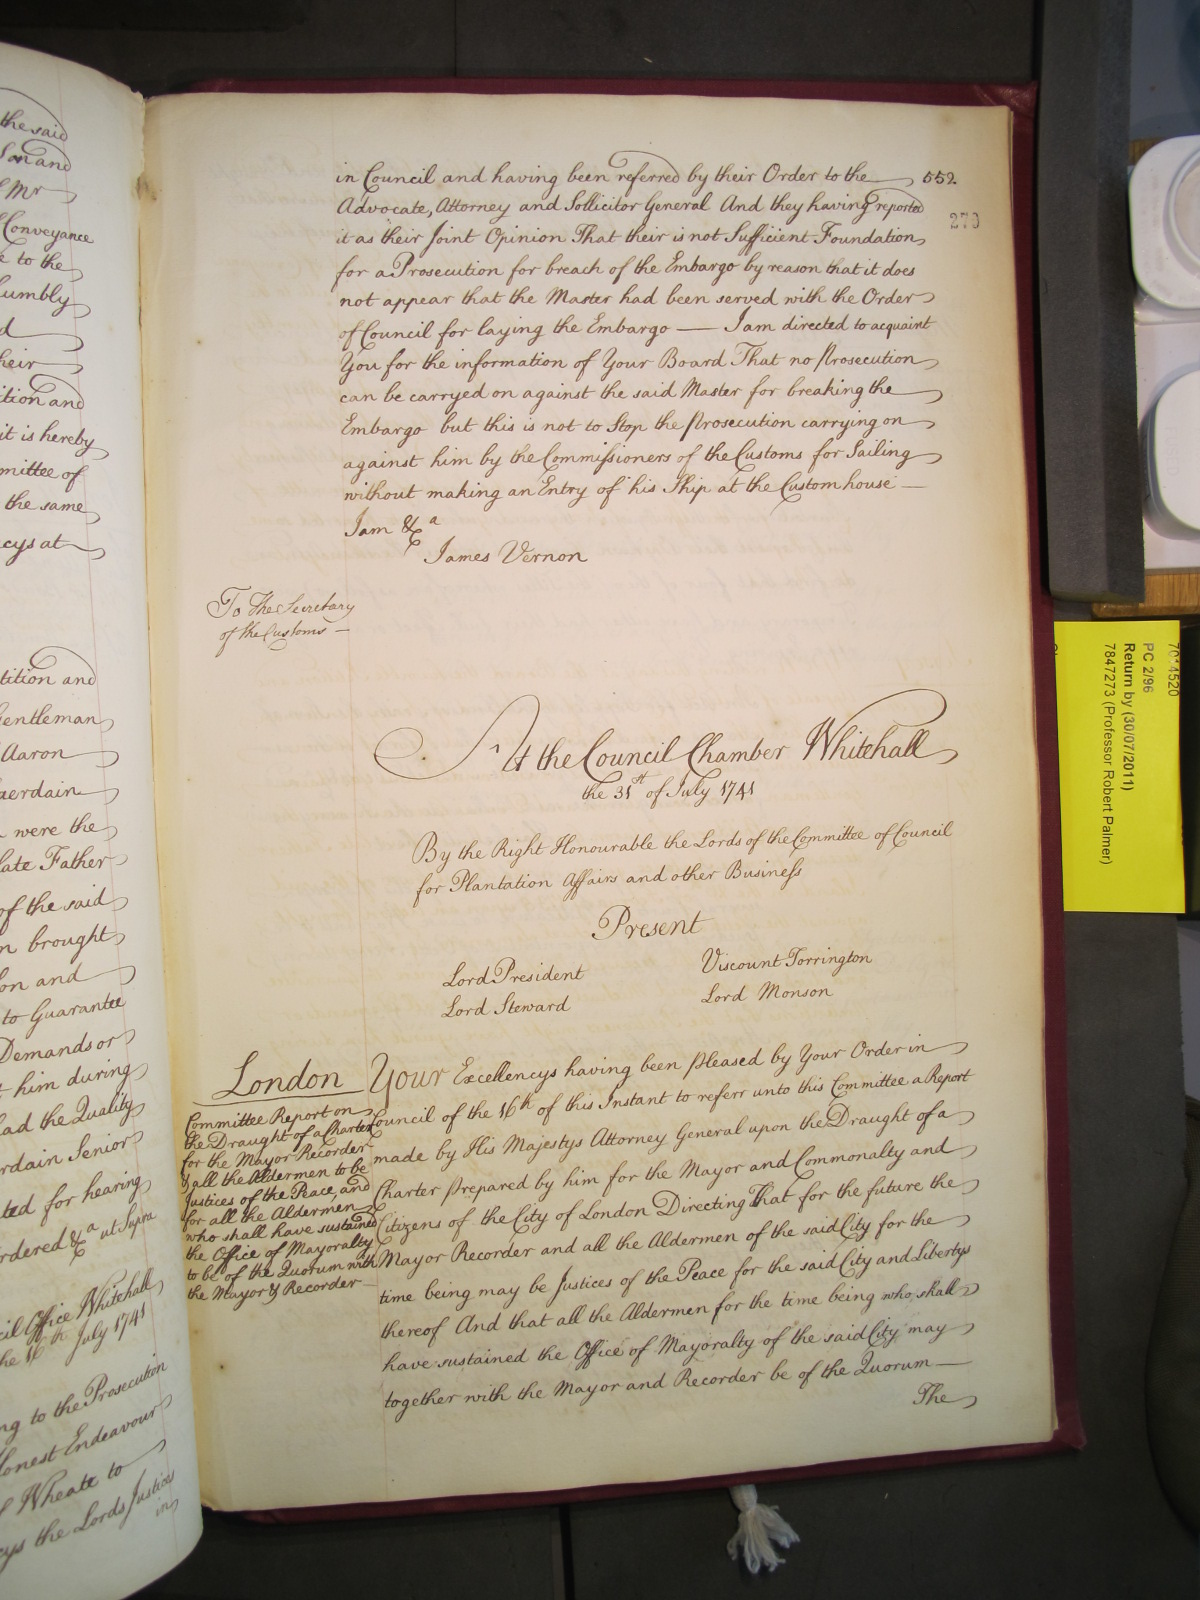 the said
Son and
Mr
Conveyance
to the
humbly
d
their
tition and
it is hereby
mittee of
the same
cys at
tition and
Gentleman
Aaron
aerdain
were the
late Father
of the said
n brought
on and
to Guarantee
Demands or
him during
had the Quality
rdain Senior
ted for hearing
rdered &ca ut Supra
cil Office Whitehall
the 16th July 1741
ng to the Prosecution
Honest Endeavour
Wheate to
cys the Lords Justices
in
552.
270
in Council and having been referred by their Order to the
Advocate, Attorney and Sollicitor General And they having reported
it as their Joint Opinion That their is not Sufficient Foundation
for a Prosecution for breach of the Embargo by reason that it does
not appear that the Master had been served with the Order
of Council for laying the Embargo — I am directed to acquaint
You for the information of Your Board That no Prosecution
can be carryed on against the said Master for breaking the
Embargo but this is not to Stop the Prosecution carrying on
against him by the Commissioners of the Customs for Sailing
without making an Entry of his Ship at the Custom house —
I am &ca
James Vernon
To the Secretary
of the Customs —
At the Council Chamber Whitehall
the 31st of July 1741
By the Right Honourable the Lords of the Committee of Council
for Plantation Affairs and other Business
Present
Lord President
Lord Steward
Viscount Torrington
Lord Monson
London
Committee Report on
the Draught of a Charter
for the Mayor Recorder
& all the Aldermen to be
Justices of the Peace, and
for all the Aldermen
who shall have sustained
the Office of Mayoralty
to be of the Quorum with
the Mayor & Recorder —
Your Excellencys having been pleased by Your Order in
Council of the 16th of this Instant to referr unto this Committee a Report
made by His Majestys Attorney General upon the Draught of a
Charter prepared by him for the Mayor and Commonalty and
Citizens of the City of London Directing That for the future the
Mayor Recorder and all the Aldermen of the said City for the
time being may be Justices of the Peace for the said City and Libertys
thereof And that all the Aldermen for the time being who shall
have sustained the Office of Mayoralty of the said City may
together with the Mayor and Recorder be of the Quorum —
The
PC 2/96
Return by (30/07/2011)
7847273 (Professor Robert Palmer)